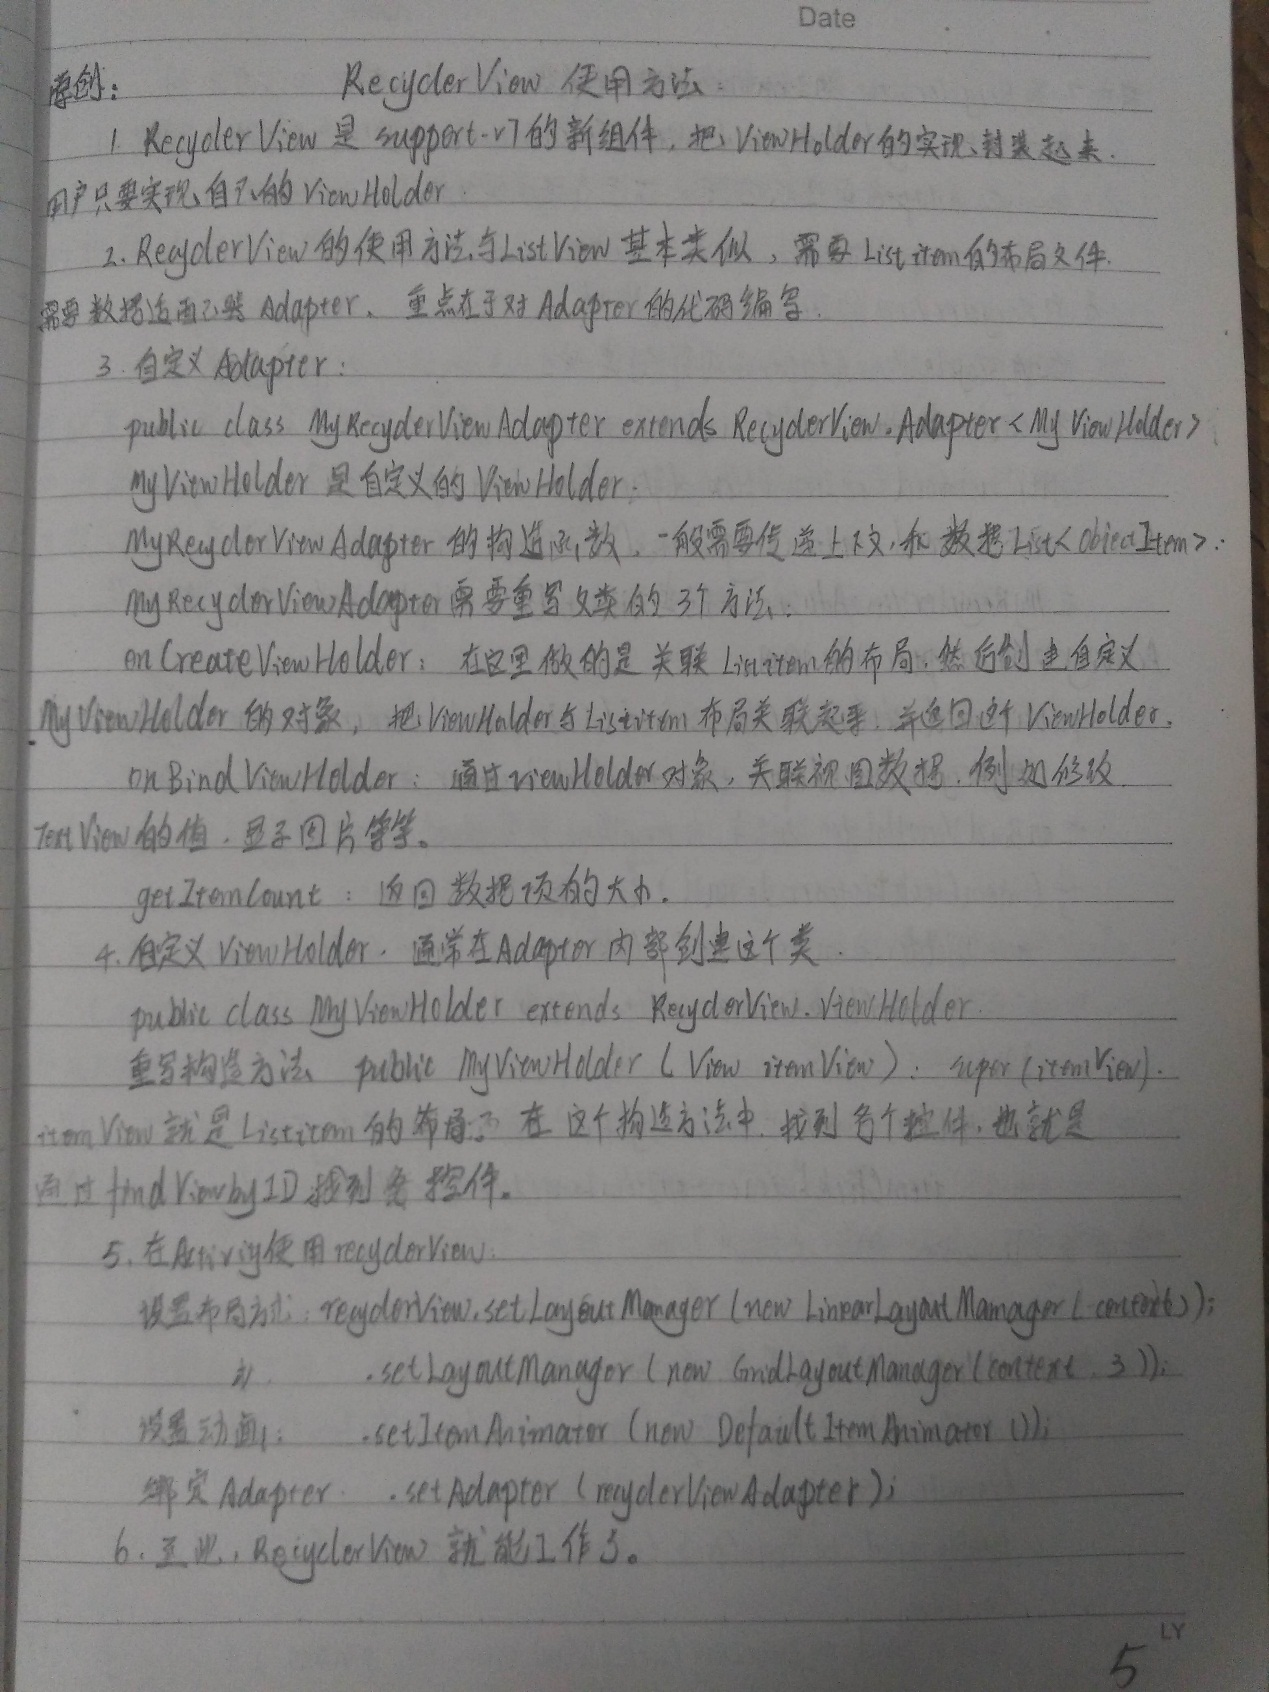 Date
原创: RecyclerView 使用方法:
1. RecyclerView 是 support-v7的新组件, 把ViewHolder的实现封装起来.
用户只要实现自己的ViewHolder.
2. RecyclerView的使用方法与ListView基本类似, 需要Listitem的布局文件.
需要数据适配器Adapter. 重点在于对Adapter的代码编写.
3. 自定义Adapter:
public class MyRecyclerViewAdapter extends RecyclerView.Adapter<MyViewHolder>
MyViewHolder是自定义的ViewHolder.
MyRecyclerViewAdapter的构造函数, 一般需要传递上下文, 和数据List<ObjectItem>.
MyRecyclerViewAdapter需要重写父类的3个方法:
onCreateViewHolder: 在这里做的是关联Listitem的布局, 然后创建自定义
MyViewHolder的对象, 把ViewHolder与Listitem布局关联起来. 并返回这个ViewHolder.
onBindViewHolder: 通过viewHolder对象, 关联视图数据, 例如修改
TextView的值, 显示图片等等。
getItemCount: 返回数据项的大小.
4. 自定义ViewHolder. 通常在Adapter内部创建这个类.
public class MyViewHolder extends RecyclerView.ViewHolder.
重写构造方法 public MyViewHolder (View itemView): super(itemView).
itemView就是Listitem的布局. 在这个构造方法中, 找到各个控件, 也就是
通过findViewbyID找到各控件。
5. 在Activiy使用recyclerView:
设置布局方式: recyclerView.setLayoutManager(new LinearLayoutManager(context));
.setLayoutManager(new GridLayoutManager(context, 3));
设置动画: .setItemAnimator(new DefaultItemAnimator());
绑定Adapter .setAdapter(recyclerViewAdapter);
6. 至此, RecyclerView 就能工作了。
LY
5